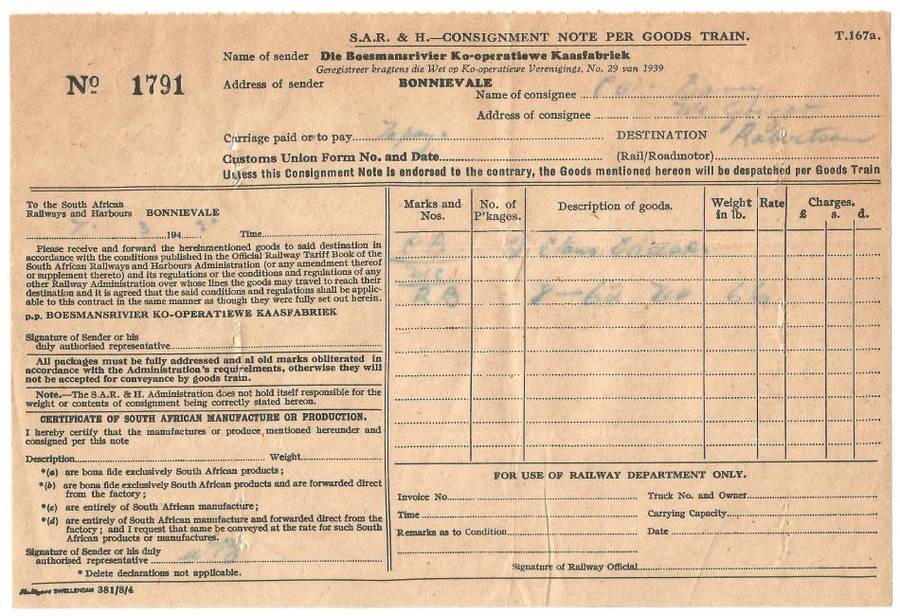 S.A.R. & H.—CONSIGNMENT NOTE PER GOODS TRAIN. T.167a.
Nº 1791
Name of sender Die Boesmansrivier Ko-operatiewe Kaasfabriek
Geregistreer kragtens die Wet op Ko-operatiewe Verenigings, No. 29 van 1939
Address of sender BONNIEVALE
Name of consignee
Address of consignee
Carriage paid or to pay DESTINATION Robertson
Customs Union Form No. and Date (Rail/Roadmotor)
Unless this Consignment Note is endorsed to the contrary, the Goods mentioned hereon will be despatched per Goods Train
To the South African
Railways and Harbours BONNIEVALE
194 Time
Please receive and forward the hereinmentioned goods to said destination in
accordance with the conditions published in the Official Railway Tariff Book of the
South African Railways and Harbours Administration (or any amendment thereof
or supplement thereto) and its regulations or the conditions and regulations of any
other Railway Administration over whose lines the goods may travel to reach their
destination and it is agreed that the said conditions and regulations shall be applic-
able to this contract in the same manner as though they were fully set out herein.
p.p. BOESMANSRIVIER KO-OPERATIEWE KAASFABRIEK
Signature of Sender or his
duly authorised representative
All packages must be fully addressed and al old marks obliterated in
accordance with the Administration's requirelments, otherwise they will
not be accepted for conveyance by goods train.
Note.—The S.A.R. & H. Administration does not hold itself responsible for the
weight or contents of consignment being correctly stated hereon.
CERTIFICATE OF SOUTH AFRICAN MANUFACTURE OR PRODUCTION.
I hereby certify that the manufactures or produce mentioned hereunder and
consigned per this note
Description Weight
*(a) are bona fide exclusively South African products;
*(b) are bona fide exclusively South African products and are forwarded direct
from the factory;
*(c) are entirely of South African manufacture;
*(d) are entirely of South African manufacture and forwarded direct from the
factory; and I request that same be conveyed at the rate for such South
African products or manufactures.
Signature of Sender or his duly
authorised representative
* Delete declarations not applicable.
SWELLENDAM 381/8/4
Marks and Nos. No. of P'kages. Description of goods. Weight in lb. Rate Charges. £ s. d.
RB
FOR USE OF RAILWAY DEPARTMENT ONLY.
Invoice No. Truck No. and Owner
Time Carrying Capacity
Remarks as to Condition Date
Signature of Railway Official